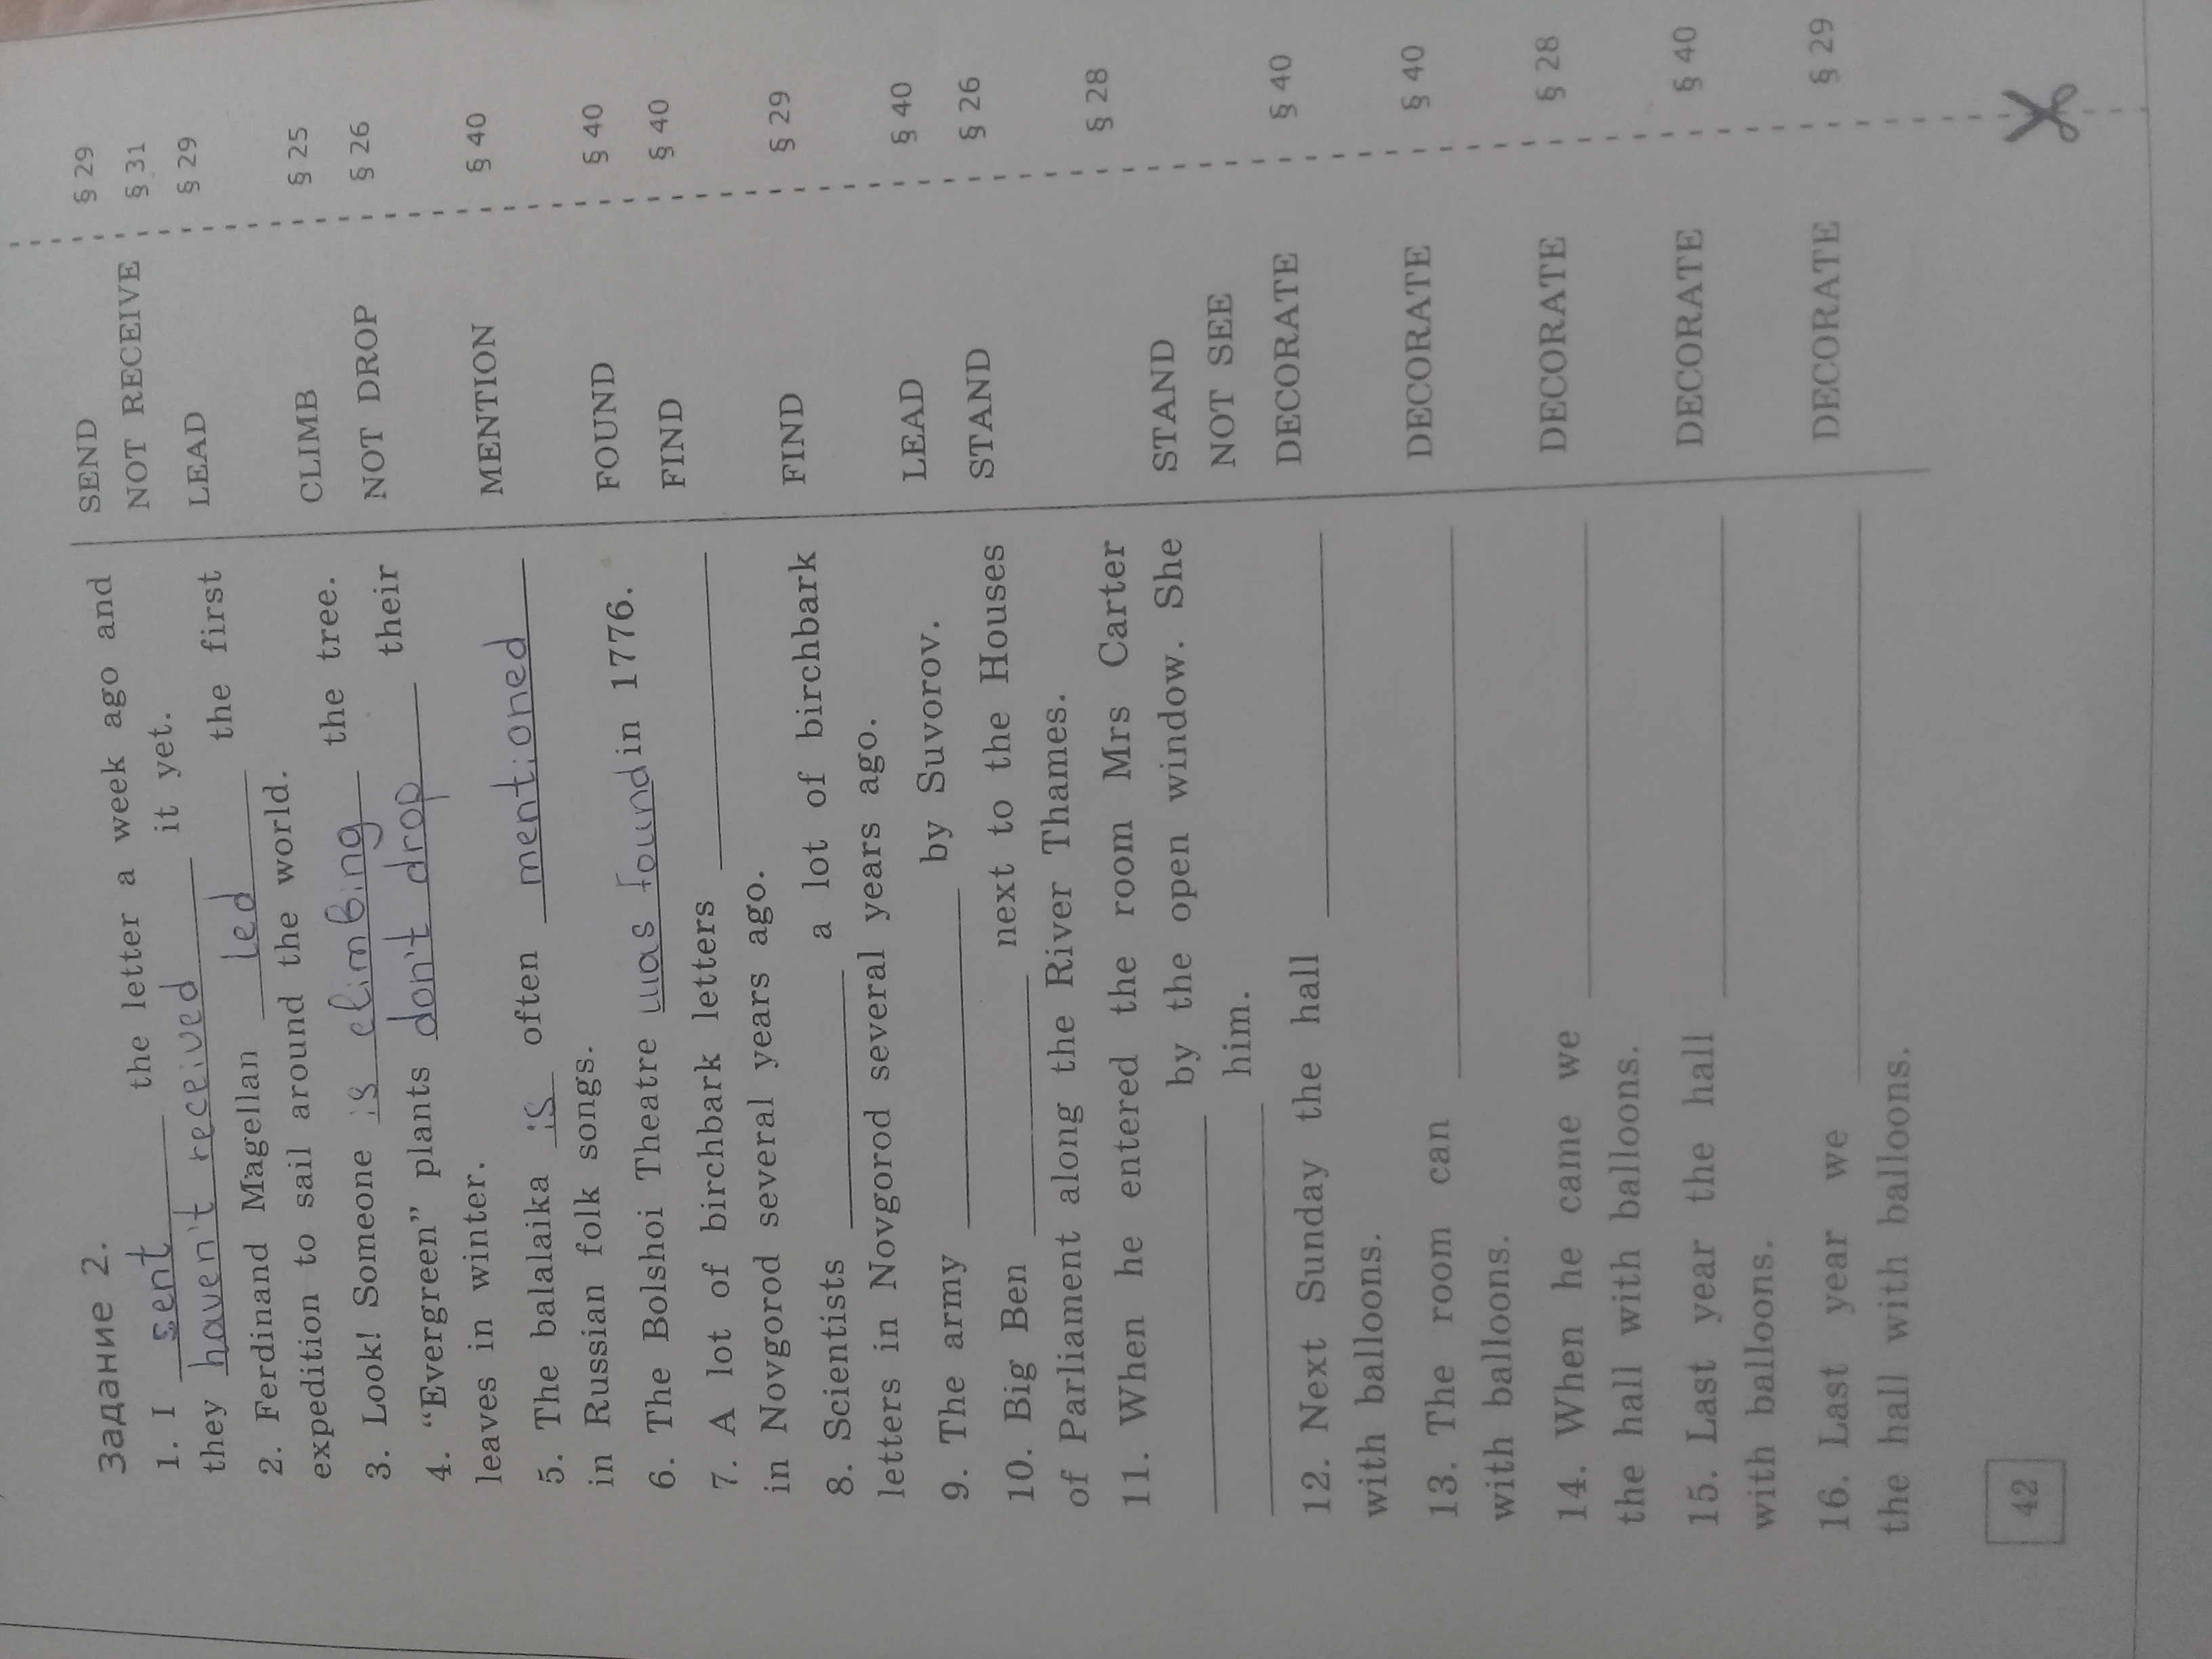 Задание 2.
1. I sent the letter a week ago and SEND § 29
they haven't received it yet. NOT RECEIVE § 31
2. Ferdinand Magellan led the first LEAD § 29
expedition to sail around the world.
3. Look! Someone is climbing the tree. CLIMB § 25
4. “Evergreen” plants don't drop their NOT DROP § 26
leaves in winter.
5. The balalaika is often mentioned MENTION § 40
in Russian folk songs.
6. The Bolshoi Theatre was found in 1776. FOUND § 40
7. A lot of birchbark letters ________ FIND § 40
in Novgorod several years ago.
8. Scientists ________ a lot of birchbark FIND § 29
letters in Novgorod several years ago.
9. The army ________ by Suvorov. LEAD § 40
10. Big Ben ________ next to the Houses STAND § 26
of Parliament along the River Thames.
11. When he entered the room Mrs Carter § 28
________ by the open window. She STAND
________ him. NOT SEE
12. Next Sunday the hall ________ DECORATE § 40
with balloons.
13. The room can ________ DECORATE § 40
with balloons.
14. When he came we ________ DECORATE § 28
the hall with balloons.
15. Last year the hall ________ DECORATE § 40
with balloons.
16. Last year we ________ DECORATE § 29
the hall with balloons.
42